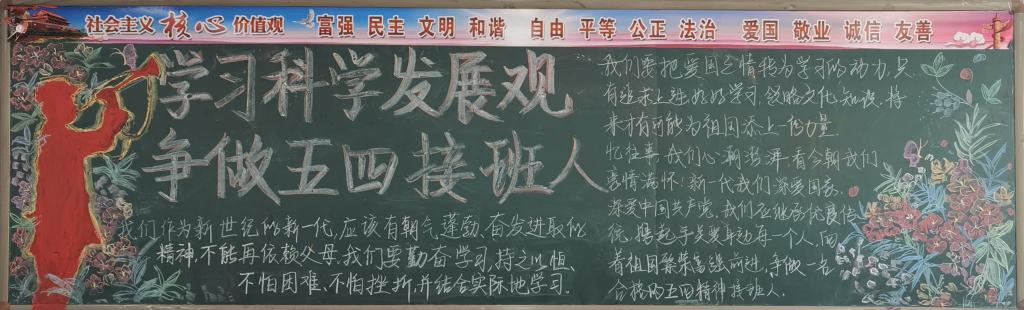 社会主义核心价值观 富强 民主 文明 和谐 自由 平等 公正 法治 爱国 敬业 诚信 友善
学习科学发展观
争做五四接班人
我们作为新世纪的新一代,应该有朝气蓬勃,奋发进取的
精神,不能再依赖父母,我们要勤奋学习,持之以恒,
不怕困难,不怕挫折,并结合实际地学习.
我们要把爱国之情转为学习的动力,只
有追求上进,好好学习,领略文化知识,将
来才有可能为祖国添上一份力量.
忆往事,我们心潮澎湃,看今朝我们
豪情满怀!新一代我们深爱国家,
深爱中国共产党,我们应继承优良传
统,携起手共同每一个人,向
着祖国繁荣富强前进,争做一名
合格的五四精神接班人.